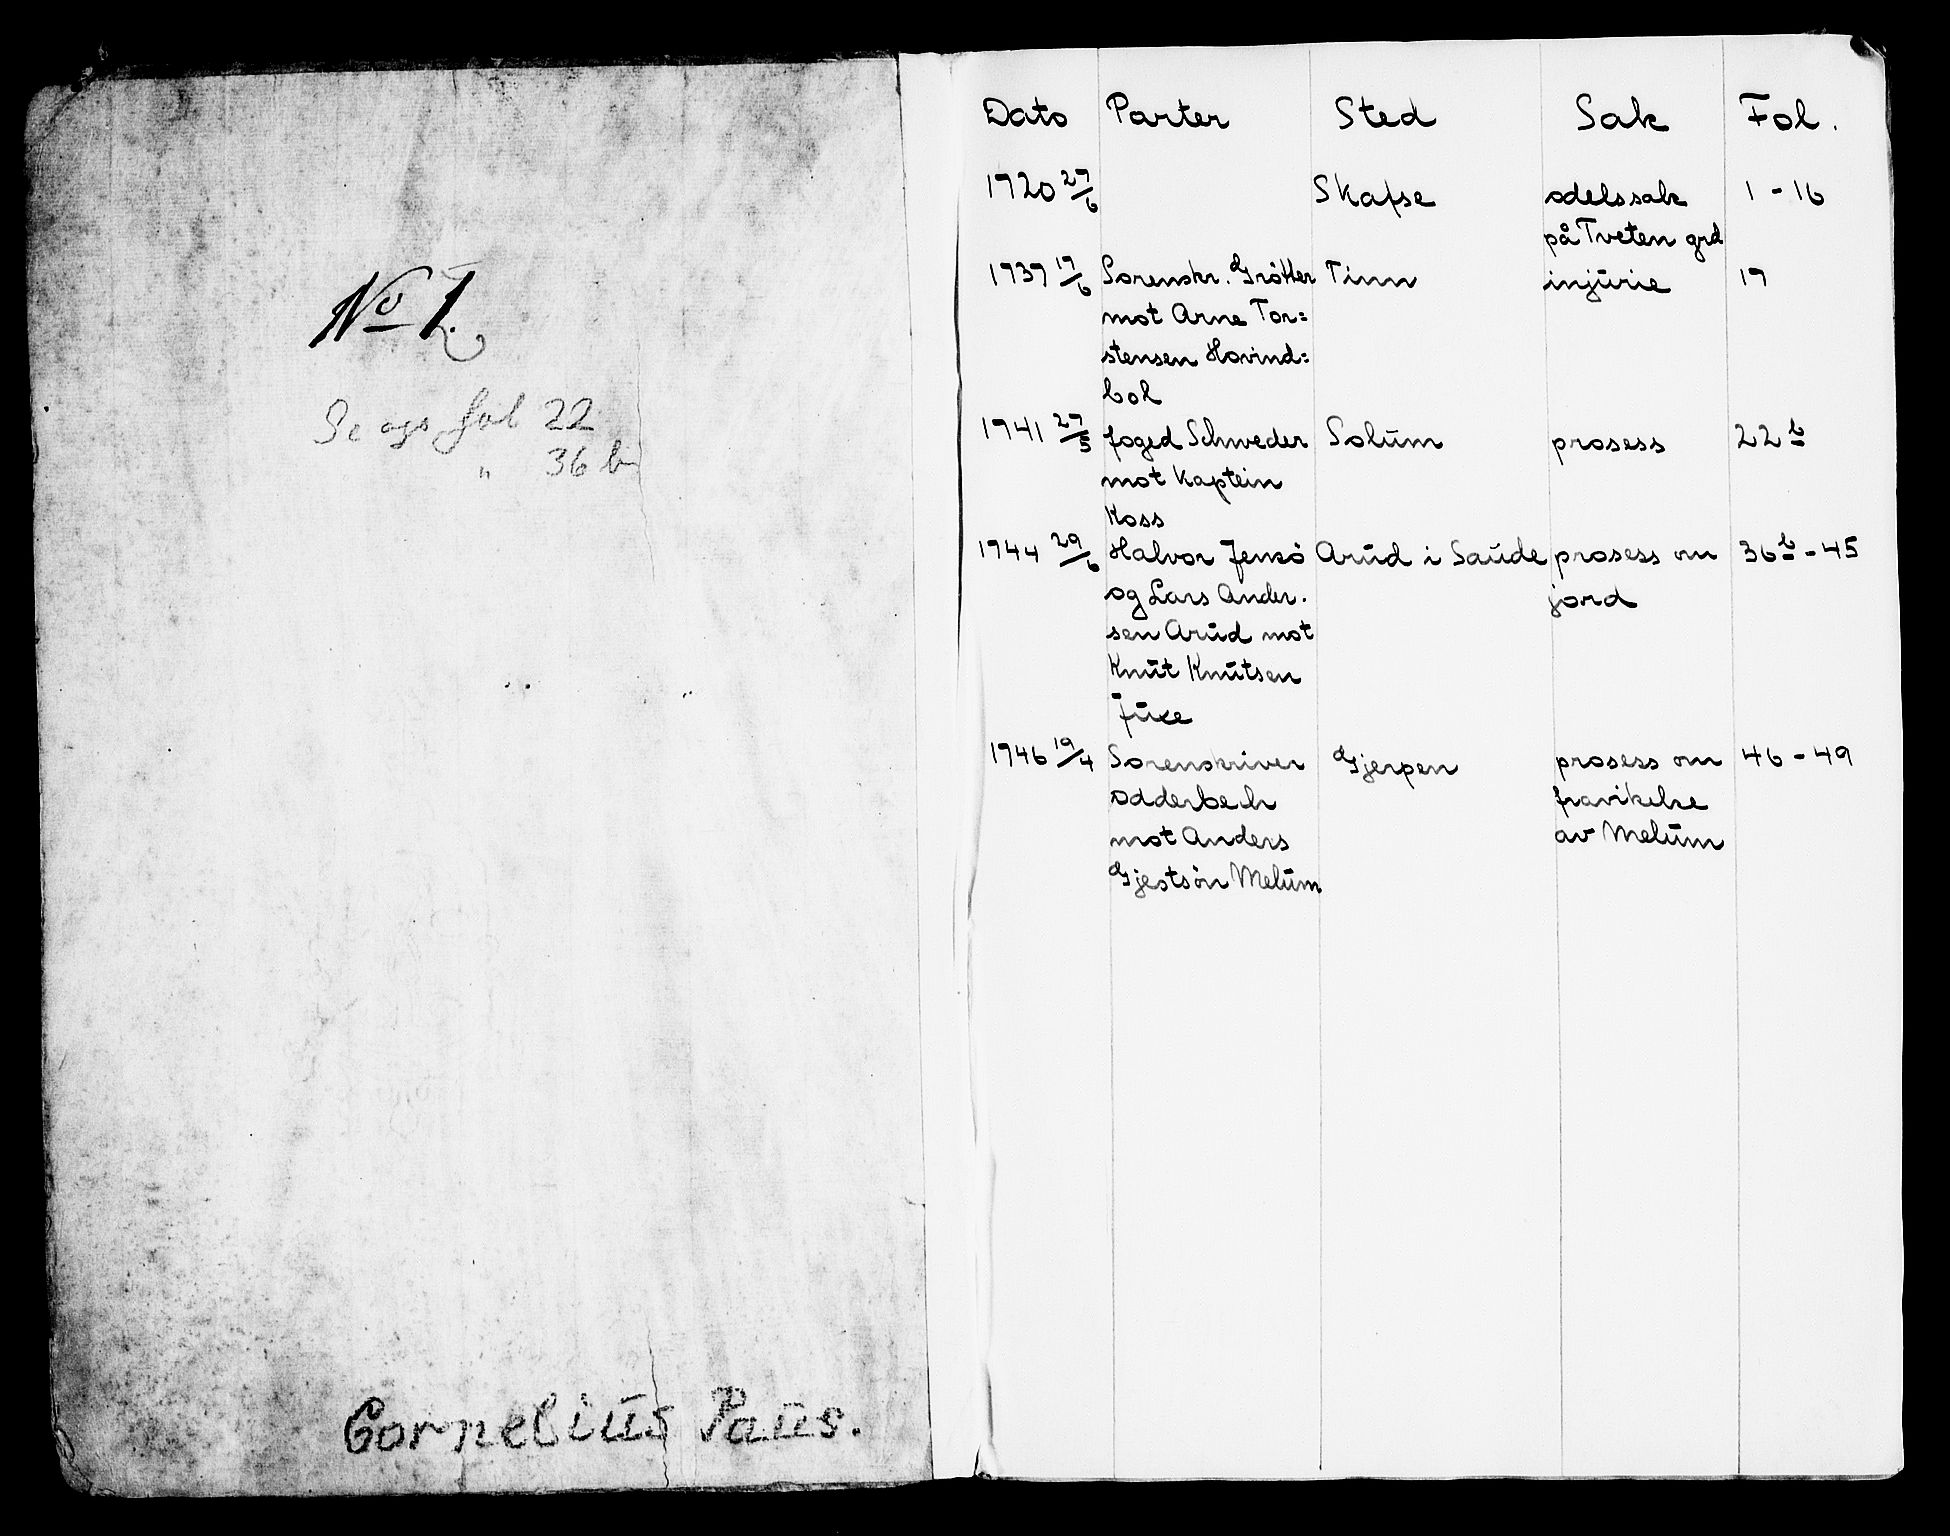 No 1.
Se ogs fol 22
" 36 b
Cornelius Paus.
Dato Parter Sted Sak Fol.
1720 27/6 Skafse odelssak 1 - 16
på Tveten grd
1737 17/6 Sorenskr. Grötter Tinn injurie 17
mot Arne Tor=
stensen Hovind=
bøl
1741 27/5 foged Schweder Solum prosess 22 b
mot Kaptein
Koss
1744 29/6 Halvor Jensö Arud i Saude prosess om 36 b - 45
og Lars Ander. jord
sen Arud mot
Knut Knutsen
Juve
1746 19/4 Sorenskriver Gjerpen prosess om 46 - 49
Odderbech fravikelse
mot Anders av Melum
Gjestsön Melum